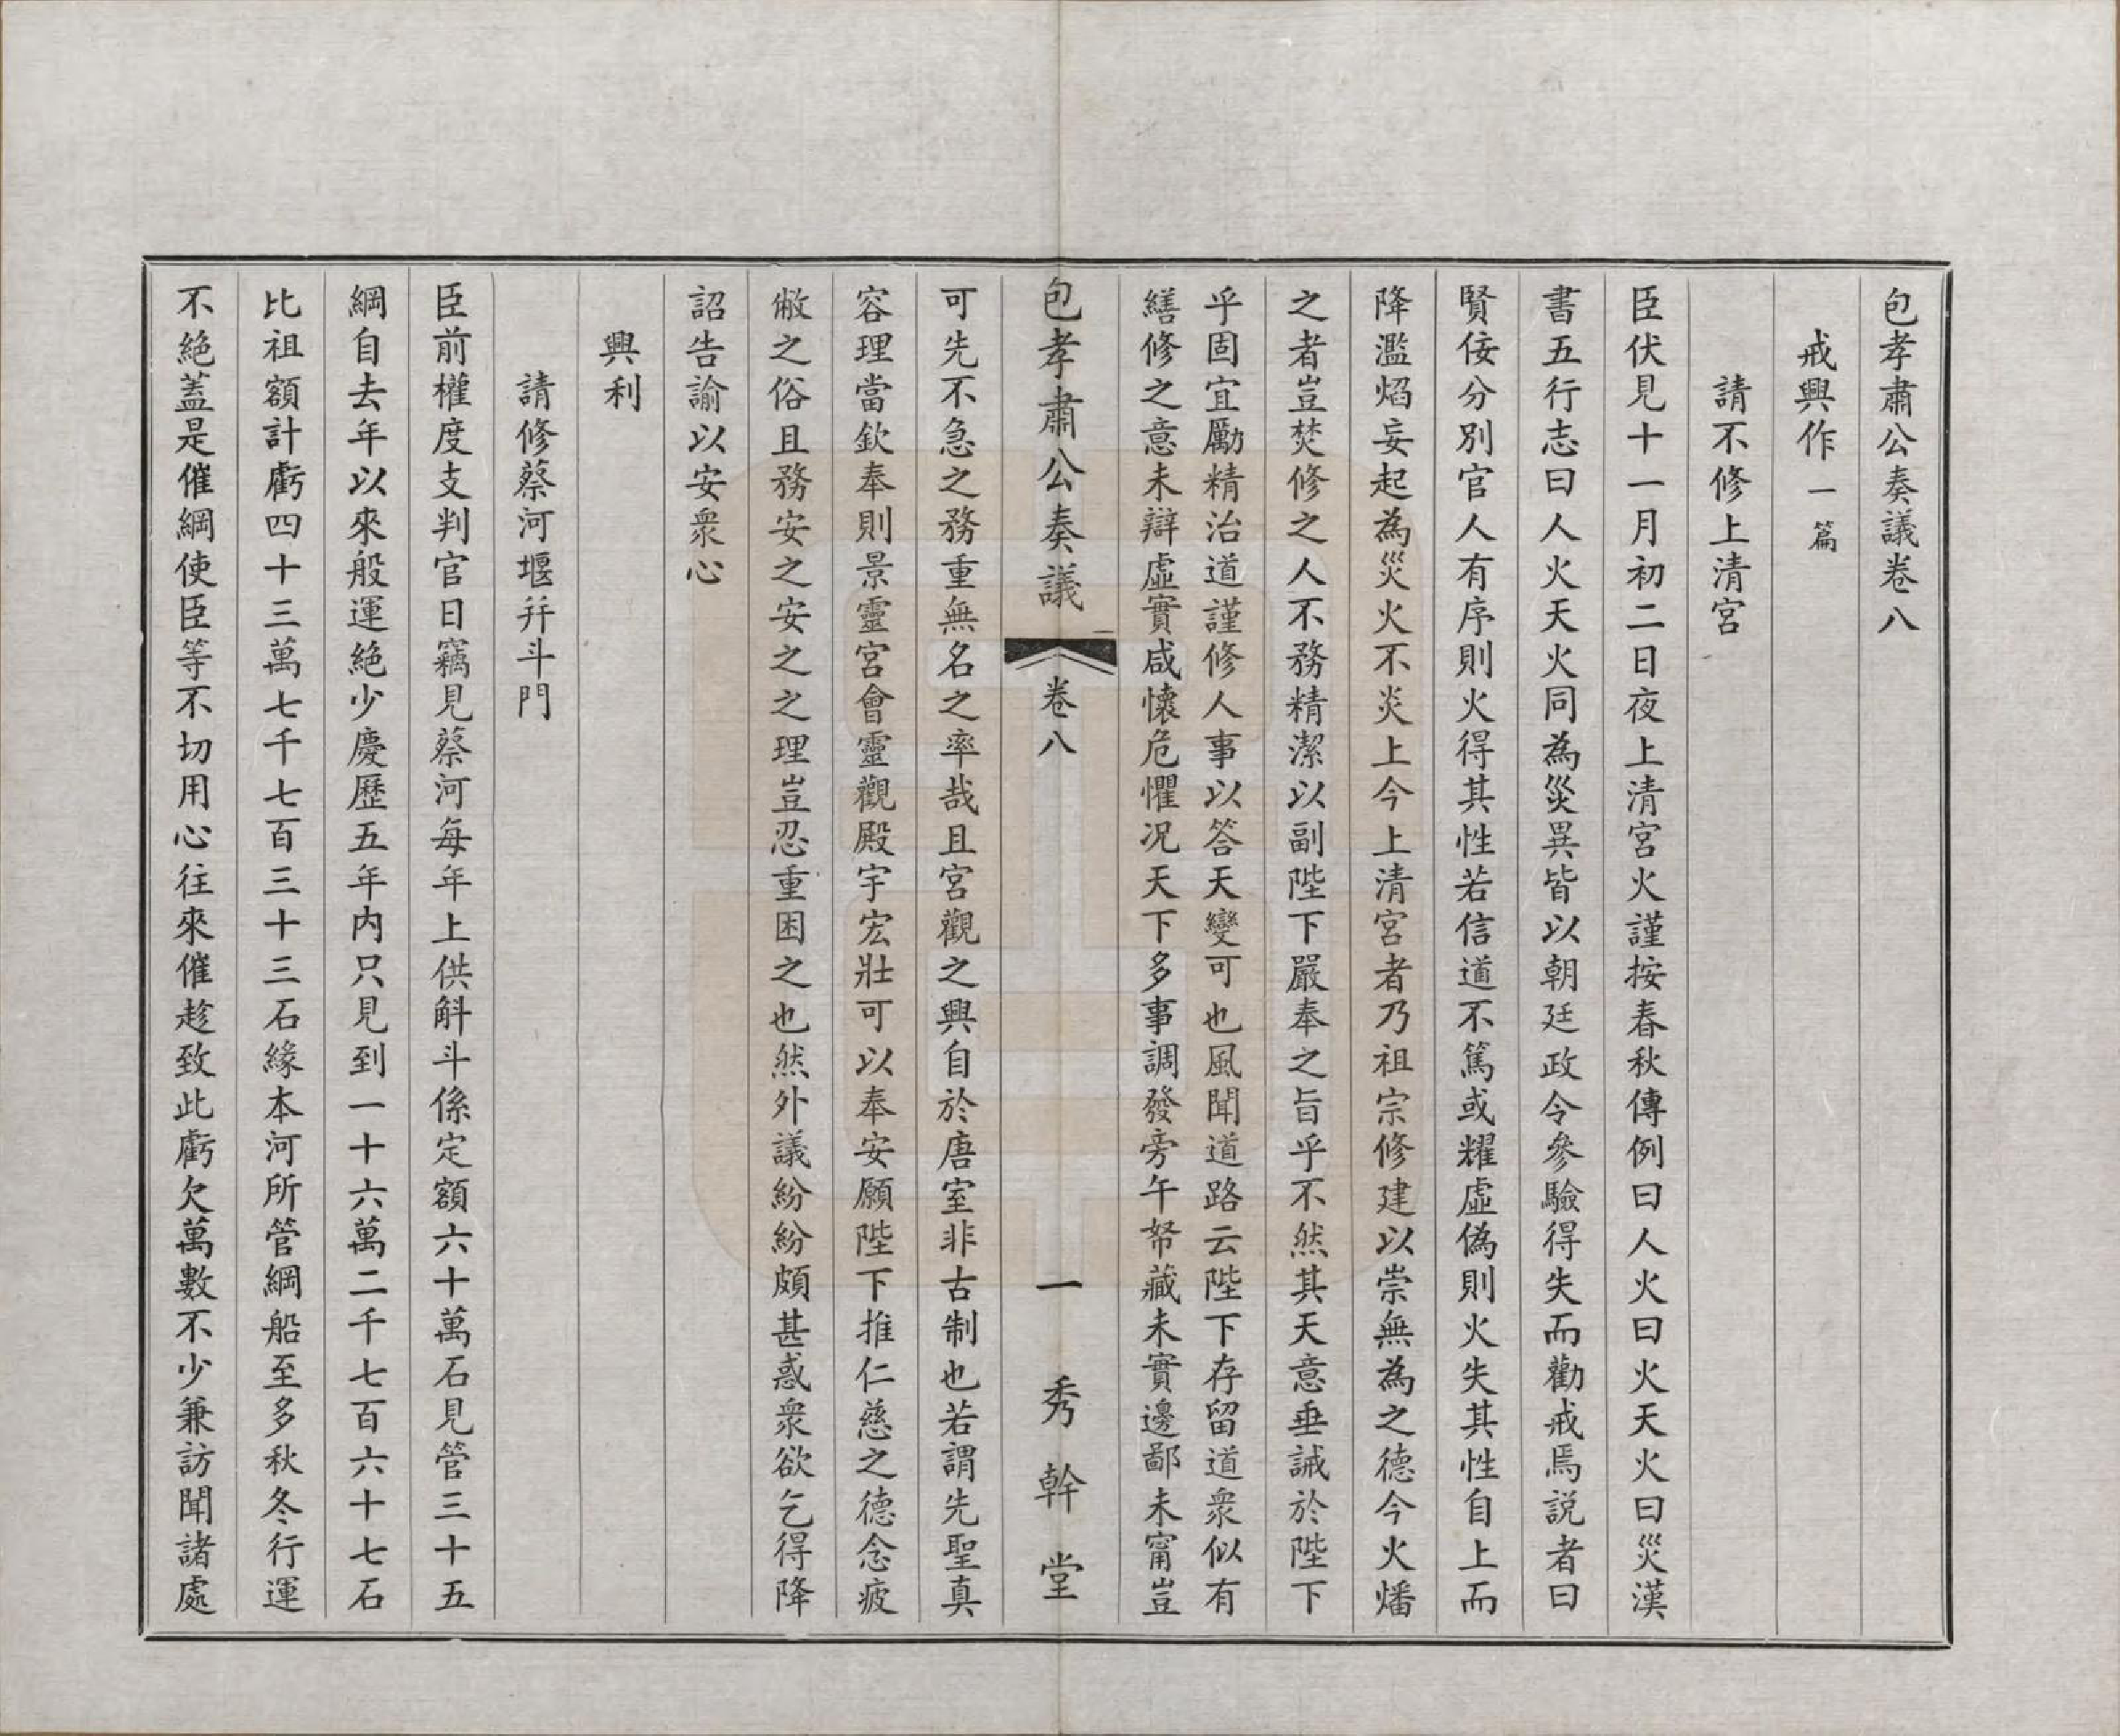 包孝肅公奏議卷八
戒興作一篇
請不修上清宮
臣伏見十一月初二日夜上清宮火謹按春秋傳例曰人火曰火天火曰災漢
書五行志曰人火天火同為災異皆以朝廷政令參驗得失而勸戒焉説者曰
賢佞分別官人有序則火得其性若信道不篤或耀虛偽則火失其性自上而
降濫焰妄起為災火不炎上今上清宮者乃祖宗修建以崇無為之德今火燔
之者豈焚修之人不務精潔以副陛下嚴奉之旨乎不然其天意垂誡於陛下
乎固宜勵精治道謹修人事以答天變可也風聞道路云陛下存留道衆似有
繕修之意未辯虛實咸懷危懼况天下多事調發旁午帑藏未實邊鄙未甯豈
包孝肅公奏議 卷八 一 秀幹堂
可先不急之務重無名之率哉且宮觀之興自於唐室非古制也若謂先聖真
容理當欽奉則景靈宮會靈觀殿宇宏壯可以奉安願陛下推仁慈之德念疲
敝之俗且務安之安之之理豈忍重困之也然外議紛紛頗甚惑衆欲乞得降
詔告諭以安衆心
興利
請修蔡河堰幷斗門
臣前權度支判官日竊見蔡河每年上供斛斗係定額六十萬石見管三十五
綱自去年以來般運絕少慶歷五年内只見到一十六萬二千七百六十七石
比祖額計虧四十三萬七千七百三十三石緣本河所管綱船至多秋冬行運
不絕蓋是催綱使臣等不切用心往來催趁致此虧欠萬數不少兼訪聞諸處